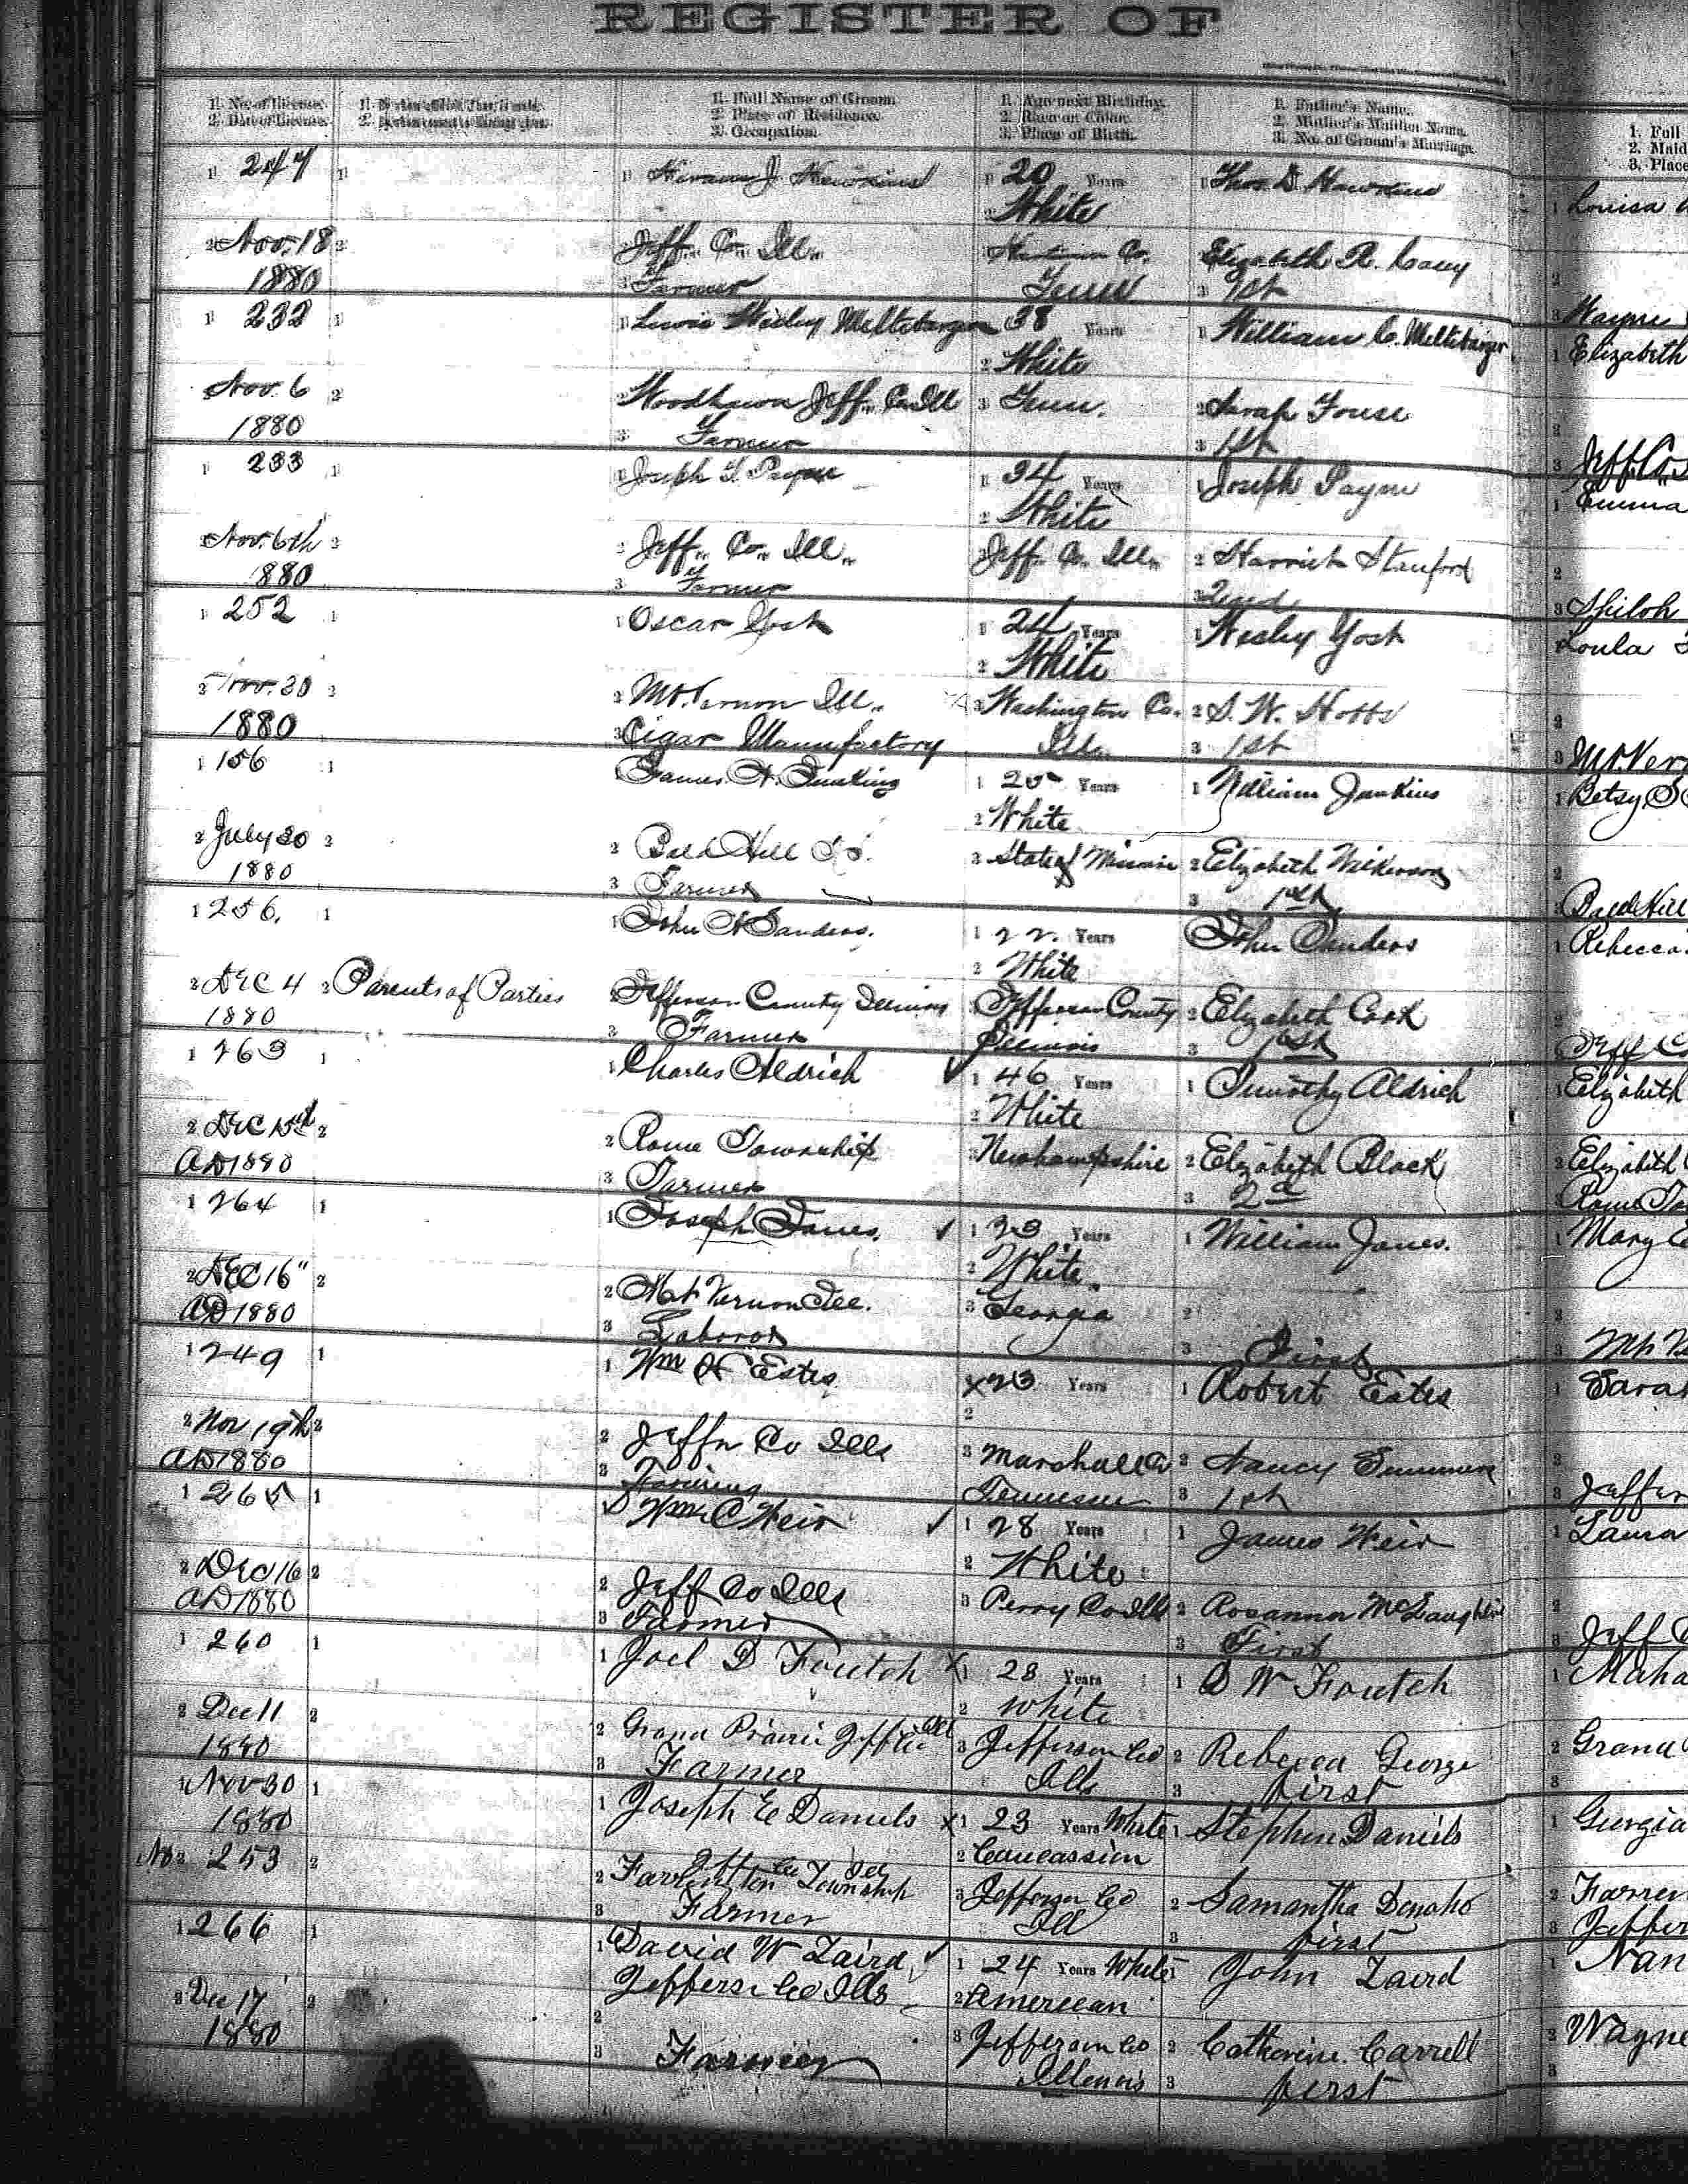 REGISTER OF
1. No. of License.
2. Date of License.
1. Full Name of Groom.
2. Place of Residence.
3. Occupation.
1. Age next Birthday.
2. Race or Color.
3. Place of Birth.
1. Father's Name.
2. Mother's Maiden Name.
3. No. of Groom's Marriage.
1. Full
2. Maid
3. Place
1 247 1
1 Hiram J. Hawkins
1 20 Years
2 White
1 Thos. D. Hawkins
1 Louisa
2 Nov. 18 2
1880
2 Jeff. Co. Ill.
3 Farmer
Co.
Tenn
Elizabeth R.
3 1st
2
3 Wayne
1 232 1
1 Lewis Wesley Meltebarger
38 Years
2 White
1 William C. Meltebarger
1 Elizabeth
Nov. 6 2
1880
2 Woodlawn Jeff. Co. Ill
3 Farmer
3 Tenn.
2 Sarah Fouse
3 1st
2
3 Jeff. Co.
1 233 1
1 Joseph T. Payne
1 34 Years
2 White
1 Joseph Payne
1 Emma
2 Nov. 6th 2
1880
2 Jeff. Co. Ill.
3 Farmer
Jeff. Co. Ill.
2 Harriet Stanford
3 2nd
2
3 Shiloh
1 252 1
1 Oscar Yost
1 24 Years
2 White
1 Wesley Yost
Loula
2 Nov. 30 2
1880
2 Mt. Vernon Ill.
3 Cigar Manufactory
3 Washington Co.
Ills.
2 S. W. Hobbs
3 1st
2
3 Mt. Ver
1 156 1
1 James H. Junkins
1 20 Years
2 White
1 William Junkins
1 Betsy
2 July 30 2
1880
2 Bald Hill
3 Farmer
3 State of Missouri
2 Elizabeth Wilkerson
3 1st
2
Bald Hill
1 256. 1
1 John H Sanders.
1 22. Years
2 White
John Sanders
1 Rebecca
2 DEC 4 2
1880
Parents of Parties
2 Jefferson County Illinois
3 Farmer
Jefferson County
Illinois
2 Elizabeth Cook
3 1st
2
Jeff Co
1 263 1
1 Charles Aldrich
1 46 Years
2 White
1 Timothy Aldrich
1 Elizabeth
2 DEC 15th 2
AD 1880
2 Rome Township
3 Farmer
3 Newhampshire
2 Elizabeth Black
3 2d
2 Elizabeth
3 Rome To
1 264 1
1 Joseph Jones.
1 23 Years
2 White
1 William Jones.
1 Mary E
2 DEC 16" 2
AD 1880
2 Mt Vernon Ill.
3 Laborer
3 Georgia
2
3 First
2
3 Mt V
1 249 1
1 Wm H Estes
x 23 Years
2
1 Robert Estes
1 Sarah
2 Nov 19th 2
AD 1880
2 Jeffn Co Ills
3 Farming
3 Marshall Co
Tennessee
2 Nancy Simmons
3 1st
2
3 Jeffer
1 265 1
1 Wm C Weir
1 28 Years
2 White
1 James Weir
1 Laura
2 Dec 16 2
AD 1880
2 Jeff Co Ills
3 Farmer
3 Perry Co Ills
2 Rosanna McLaughlin
3 First
2
3 Jeff C
1 260 1
1 Joel D Foutch
x 1 28 Years
2 White
1 D W Foutch
1 Maha
2 Dec 11 2
1880
2 Grand Prairie Jeff Co Ill
3 Farmer
3 Jefferson Co
Ills
2 Rebecca George
3 first
2 Grand
3
1 Nov 30 1
1880
1 Joseph E Daniels
x 1 23 Years White
2 Caucassian
1 Stephen Daniels
1 Georgia
No 2 253 2
2 Farrington Township
Jeff Co Ill
3 Farmer
3 Jefferson Co
Ill
2 Samantha Donoho
3 first
2 Farren
3 Jeffer
1 266 1
1 David W Laird
Jefferson Co Ills
1 24 Years White
2 American
1 John Laird
1 Nan
2 Dec 17 2
1880
2
3 Farmer
3 Jefferson Co
Illenois
2 Catherine Carrell
3 first
2 Wayne
3